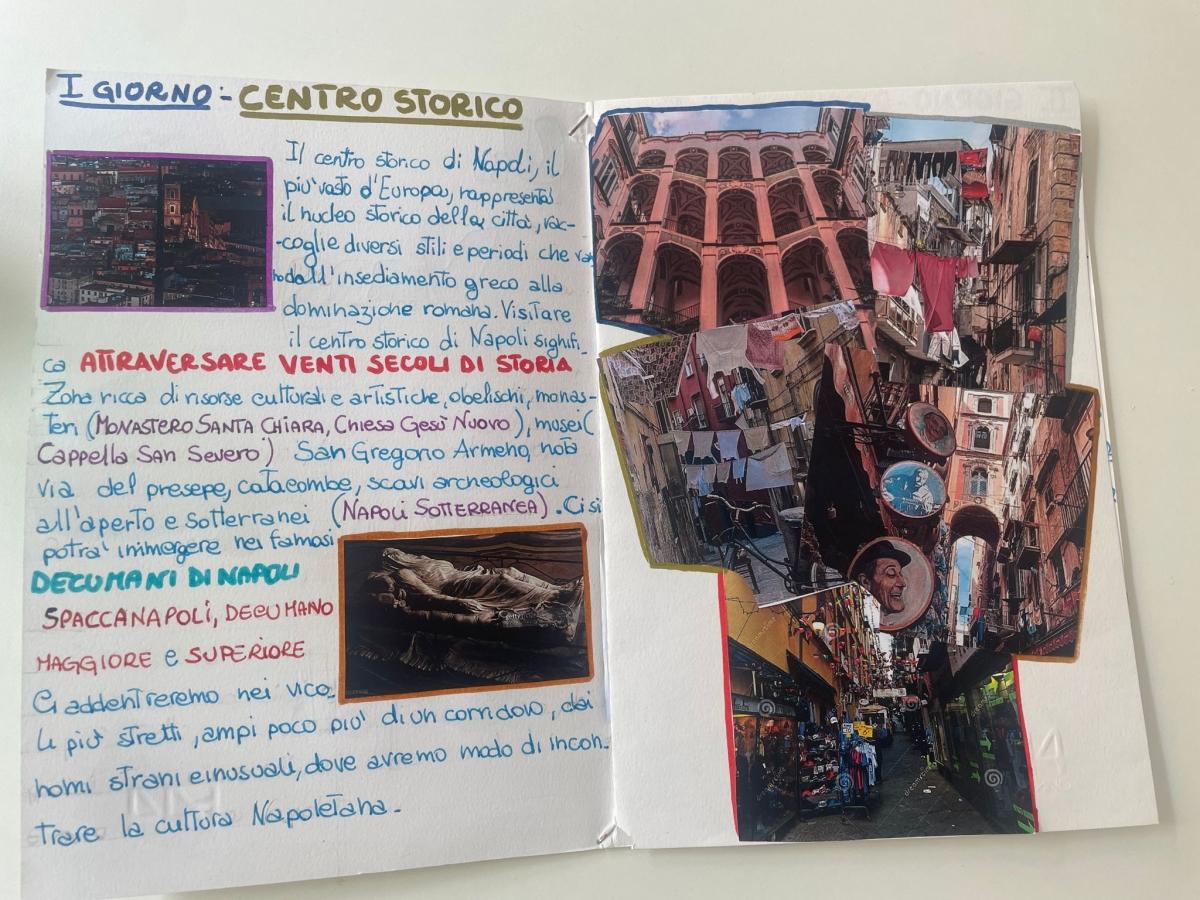 I GIORNO - CENTRO STORICO
Il centro storico di Napoli, il
più vasto d'Europa, rappresenta
il nucleo storico della città, rac-
-coglie diversi stili e periodi che van
no dall'insediamento greco alla
dominazione romana. Visitare
il centro storico di Napoli signifi-
ca ATTRAVERSARE VENTI SECOLI DI STORIA
Zona ricca di risorse culturali e artistiche, obelischi, monas-
Teri (MONASTERO SANTA CHIARA, Chiesa Gesù Nuovo), musei (
Cappella San Severo) San Gregorio Armeno, nota
via del presepe, catacombe, scavi archeologici
all'aperto e sotterranei (NAPOLI SOTTERRANEA). Ci si
potrà immergere nei famosi
DECUMANI DI NAPOLI
SPACCANAPOLI, DECUMANO
MAGGIORE e SUPERIORE
Ci addentreremo nei vico-
li più stretti, ampi poco più di un corridoio, dai
nomi strani e inusuali, dove avremo modo di incon-
trare la cultura Napoletana -